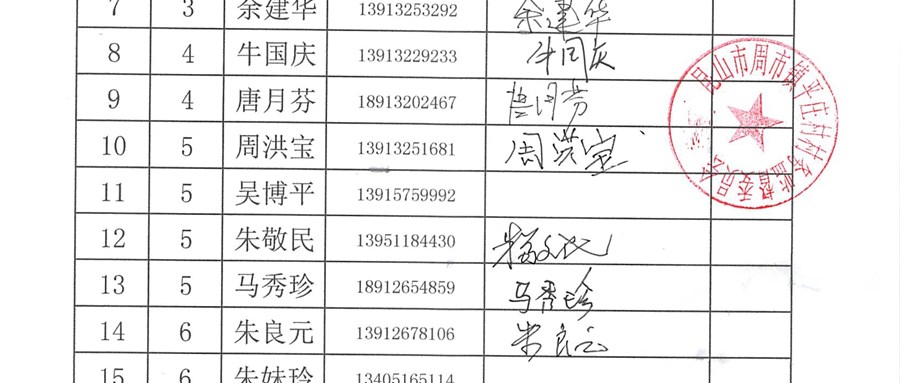 7 3 余建华 13913253292 余建华
8 4 牛国庆 13913229233 牛国庆
9 4 唐月芬 18913202467 唐月芬
10 5 周洪宝 13913251681 周洪宝
11 5 吴博平 13915759992
12 5 朱敬民 13951184430 朱敬民
13 5 马秀珍 18912654859 马秀珍
14 6 朱良元 13912678106 朱良元
15 6 朱妹玲 13405165114
昆山市周市镇平庄村村务监督委员会